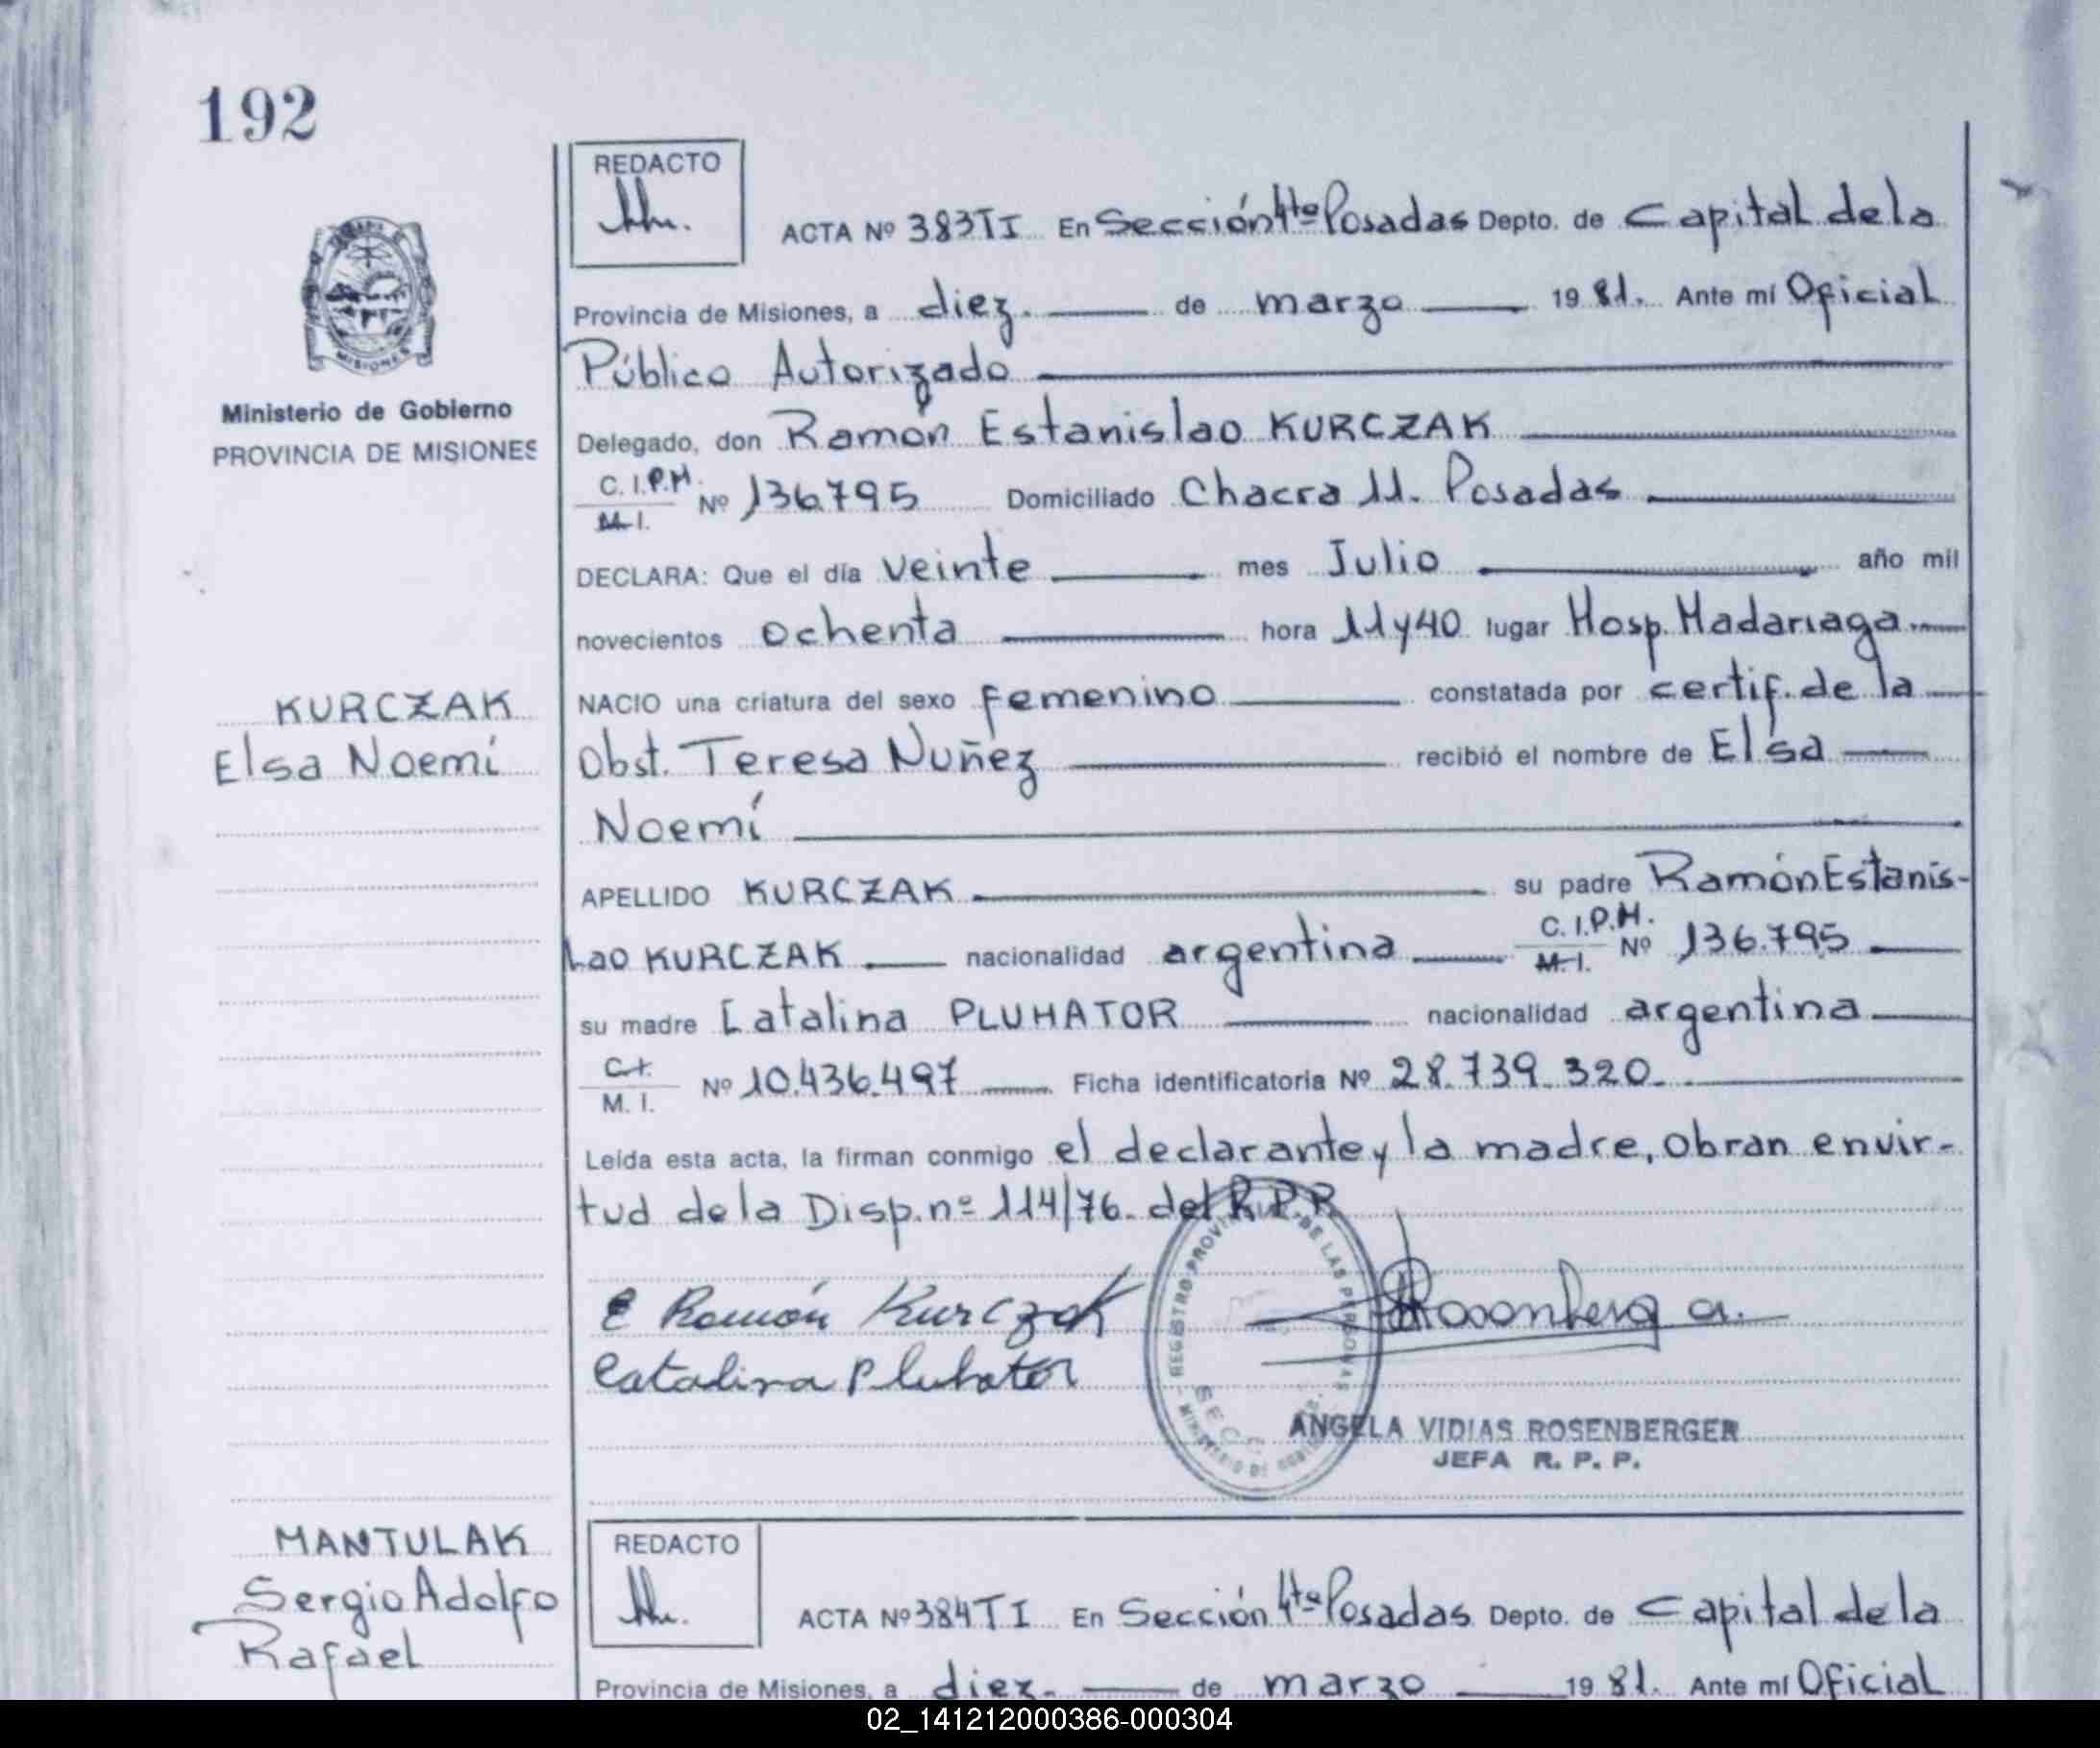 192
REDACTO
ACTA Nº 383 T I En Sección 4tª Posadas Depto. de Capital de la
Provincia de Misiones, a diez. de marzo 1981. Ante mí Oficial
Público Autorizado
Ministerio de Gobierno
PROVINCIA DE MISIONES
Delegado, don Ramón Estanislao KURCZAK
C. I. P.M. M. I. Nº 136.795 Domiciliado Chacra 11. Posadas
DECLARA: Que el día veinte mes Julio año mil
novecientos ochenta hora 11 y 40 lugar Hosp. Madariaga
KURCZAK
Elsa Noemí
NACIO una criatura del sexo femenino constatada por certif. de la
Obst. Teresa Nuñez recibió el nombre de Elsa
Noemí
APELLIDO KURCZAK su padre Ramón Estanis-
lao KURCZAK nacionalidad argentina C. I. P.M. M. I. Nº 136.795
su madre Catalina PLUHATOR nacionalidad argentina
C. I. M. I. Nº 10.436.497 Ficha identificatoria Nº 28.739.320.
Leída esta acta, la firman conmigo el declarante y la madre, obran en vir-
tud de la Disp. nº 114/76. del R.P.P.
E Ramón Kurczak
Catalina Pluhator
REGISTRO PROVINCIAL DE LAS PERSONAS
ANGELA VIDIAS ROSENBERGER
JEFA R. P. P.
MANTULAK
Sergio Adolfo
Rafael
REDACTO
ACTA Nº 384 T I En Sección 4tª Posadas Depto. de Capital de la
Provincia de Misiones, a diez. de marzo 1981. Ante mí Oficial
02_141212000386-000304